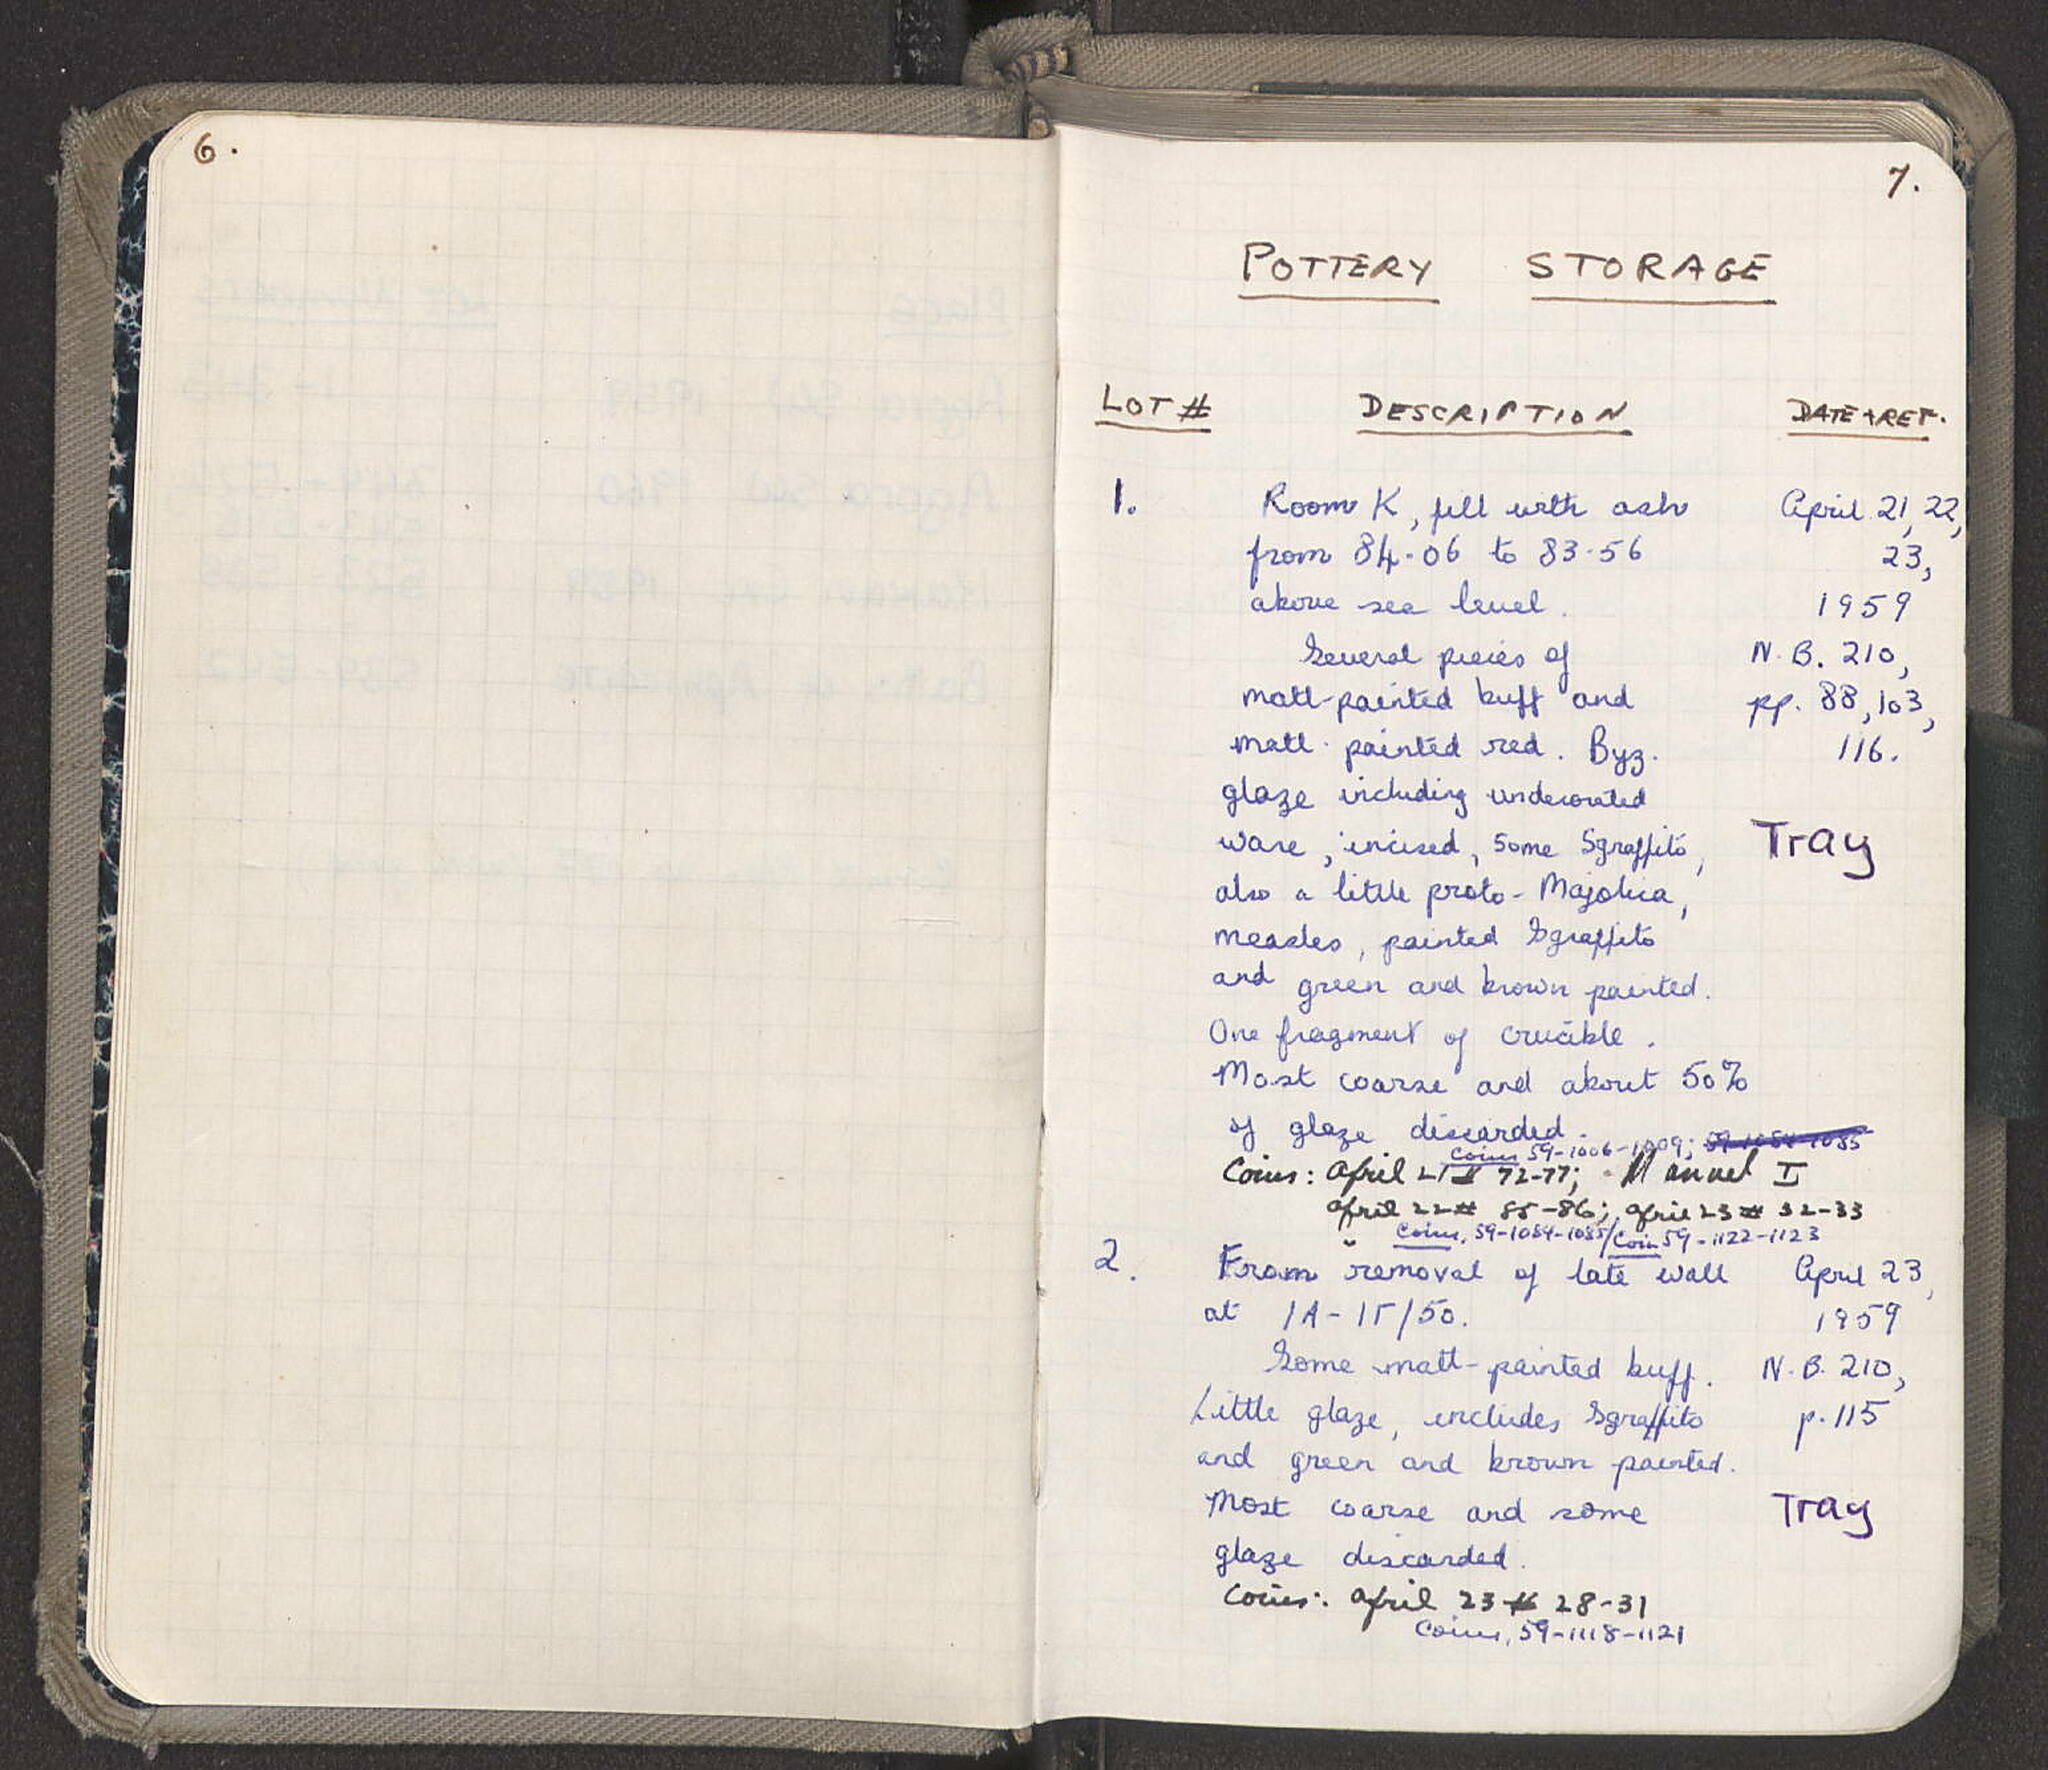 6.
7.
POTTERY STORAGE
LOT # DESCRIPTION DATE + REF.
1. Room K, fill with ash April 21, 22,
from 84.06 to 83.56 23,
above sea level. 1959
Several pieces of N.B. 210,
matt-painted buff and pp. 88, 103,
matt-painted red. Byz. 116.
glaze including undecorated
ware, incised, some Sgraffito, Tray
also a little proto-Majolica,
measles, painted Sgraffito
and green and brown painted.
One fragment of crucible.
Most coarse and about 50%
of glaze discarded.
Coins 59-1006-1009; 59-1084-1085
Coins: April 21 # 72-77; Manuel I
April 22 # 85-86; April 23 # 32-33
Coins, 59-1084-1085/Coin 59-1122-1123
2. From removal of late wall April 23,
at 1A-1Γ/50. 1959
Some matt-painted buff. N.B. 210,
Little glaze, includes Sgraffito p. 115
and green and brown painted.
Most coarse and some Tray
glaze discarded.
Coins: April 23 # 28-31
Coins, 59-1118-1121